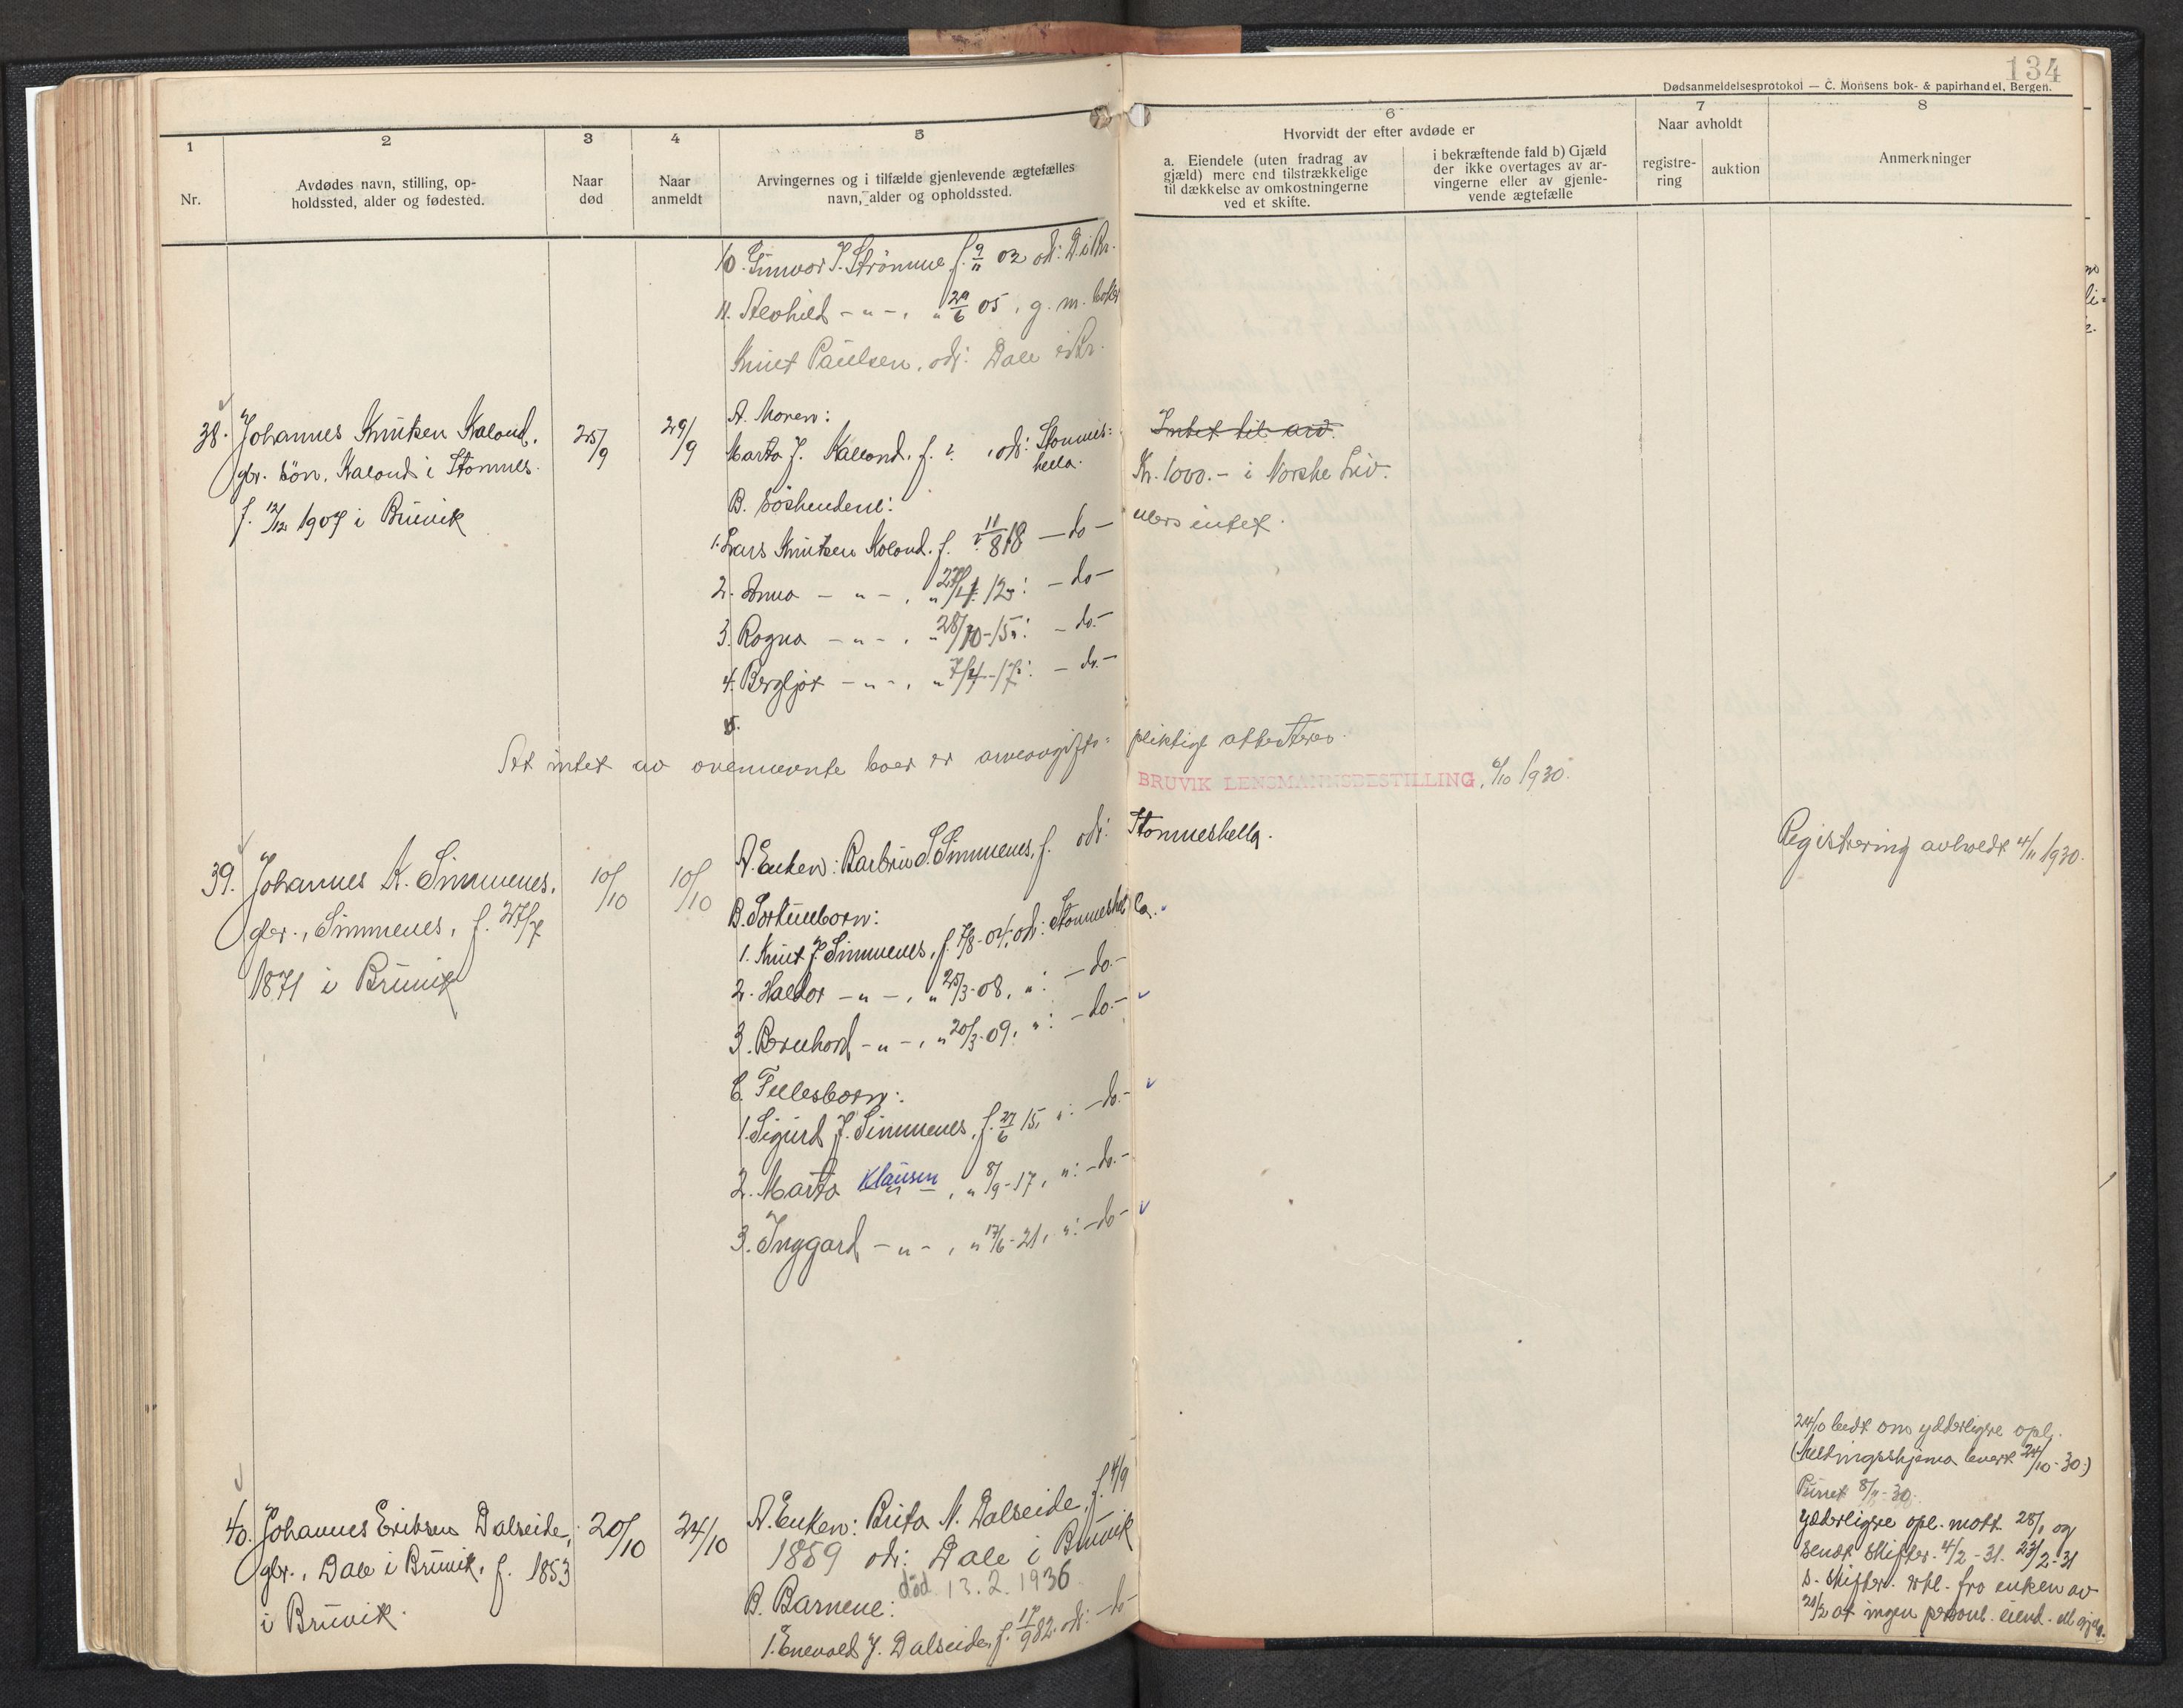 134
Dødsanmeldelsesprotokol — C. Monsens bok- & papirhandel, Bergen.
1
Nr.
2
Avdødes navn, stilling, op-
holdssted, alder og fødested.
3
Naar
død
4
Naar
anmeldt
5
Arvingernes og i tilfælde gjenlevende ægtefælles
navn, alder og opholdssted.
6
Hvorvidt der efter avdøde er
a. Eiendele (uten fradrag av
gjæld) mere end tilstrækkelige
til dækkelse av omkostningerne
ved et skifte.
i bekræftende fald b) Gjæld
der ikke overtages av ar-
vingerne eller av gjenle-
vende ægtefælle
7
Naar avholdt
registre-
ring
auktion
8
Anmerkninger
10. Gunvor J. Strömme f. 9/11 02 adr: D. i Br.
11. Alvhild - " - , " 29/6 05, g. m.
Knut Paulsen, adr: Dale i Br.
38. Johannes Knutsen Kaland,
gbr. sön, Kaland i Stamnes.
f. 12/12 1907 i Bruvik
25/9
29/9
A. Moren:
Marta J. Kalland, f. ? , adr: Stamnes-
hella.
B. Söskendene:
1. Lars Knutsen Kaland. f. 11/8 18 - do -
2. Anna - " - , " 27/4 12 : - do -
3. Ragna - " - , " 28/10 - 15 : - do -
4. Bergljot - " - , " 7/4 - 17 : - do -
5.
Intet til arv.
Kr. 1000.- i Norske Liv.
ellers intet.
At intet av ovennevnte boer er arveavgifts- pliktige attesteres.
BRUVIK LENSMANNSBESTILLING, 6/10 1930.
39. Johannes K. Simmenes,
gbr., Simmenes, f. 27/7
1871 i Bruvik
10/10
10/10
A. Enken: Barbru S. Simmenes, f. adr: Stamneshella.
B. Særkullborn:
1. Knut J. Simmenes, f. 7/8 - 04, adr: Stamneshella.
2. Haldor - " - , " 25/3 - 08, " : - do -
3. Bernhard - " - , " 20/3 - 09, " : - do -
C. Fellesborn:
1. Sigurd J. Simmenes, f. 27/6 15, " : - do -
2. Marta Klausen , " 8/9 - 17, " : - do -
3. Inggard - " - , " 17/6 - 21, " : - do -
Registrering avholdt 4/11 1930.
40. Johannes Eriksen Dalseide,
gbr., Dale i Bruvik, f. 1853
i Bruvik.
20/10
24/10
A. Enken: Brita N. Dalseide, f. 4/9
1859 adr: Dale i Bruvik
död 13.2.1936
B. Barnene:
1. Enevald J. Dalseide, f. 17/9 82. adr: - do -
24/10 bedt om ydderligere opl.
(Meldingsskjema levert 24/10 - 30.)
Purret 8/11 - 30.
Ydderligere opl. mott. 28/1 og
sendt skifter. 4/2 - 31. 23/2 - 31
s. skifter. erkl. fra enken av
20/2 at ingen personl. eiend. el. gjeld.